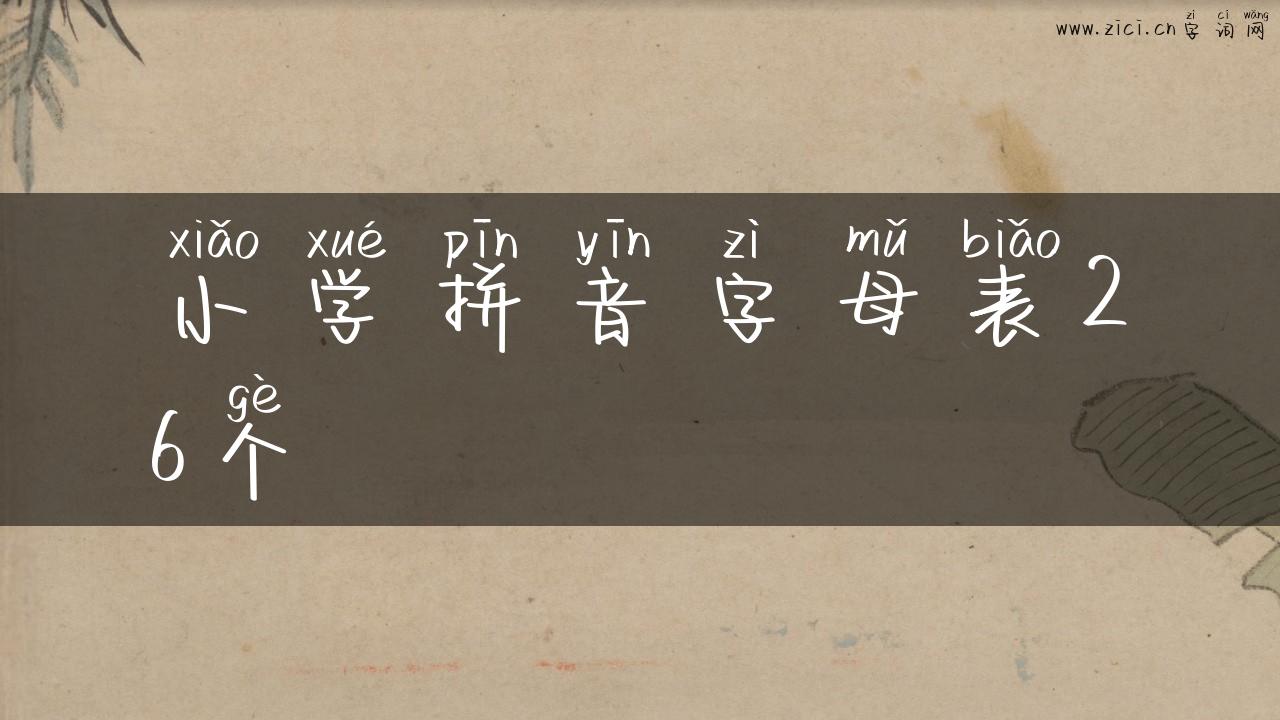 zì cí wǎng
www.zici.cn 字 词 网
xiǎo xué pīn yīn zì mǔ biǎo
小 学 拼 音 字 母 表 2
gè
6 个